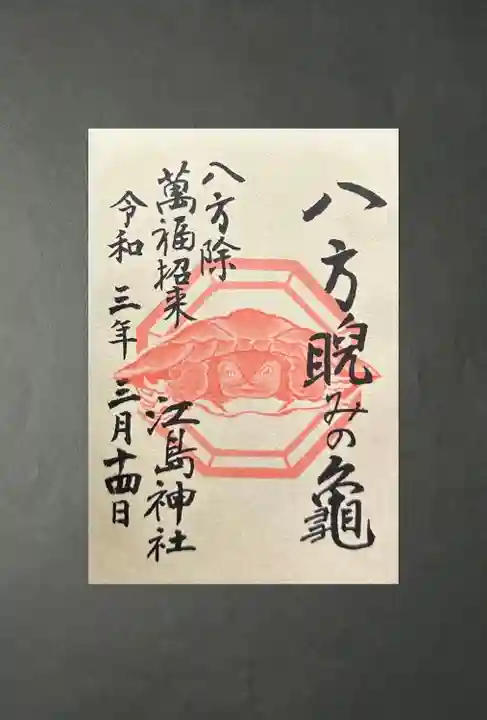 八方睨みの亀
八方除
萬福招来 江島神社
令和三年三月十四日